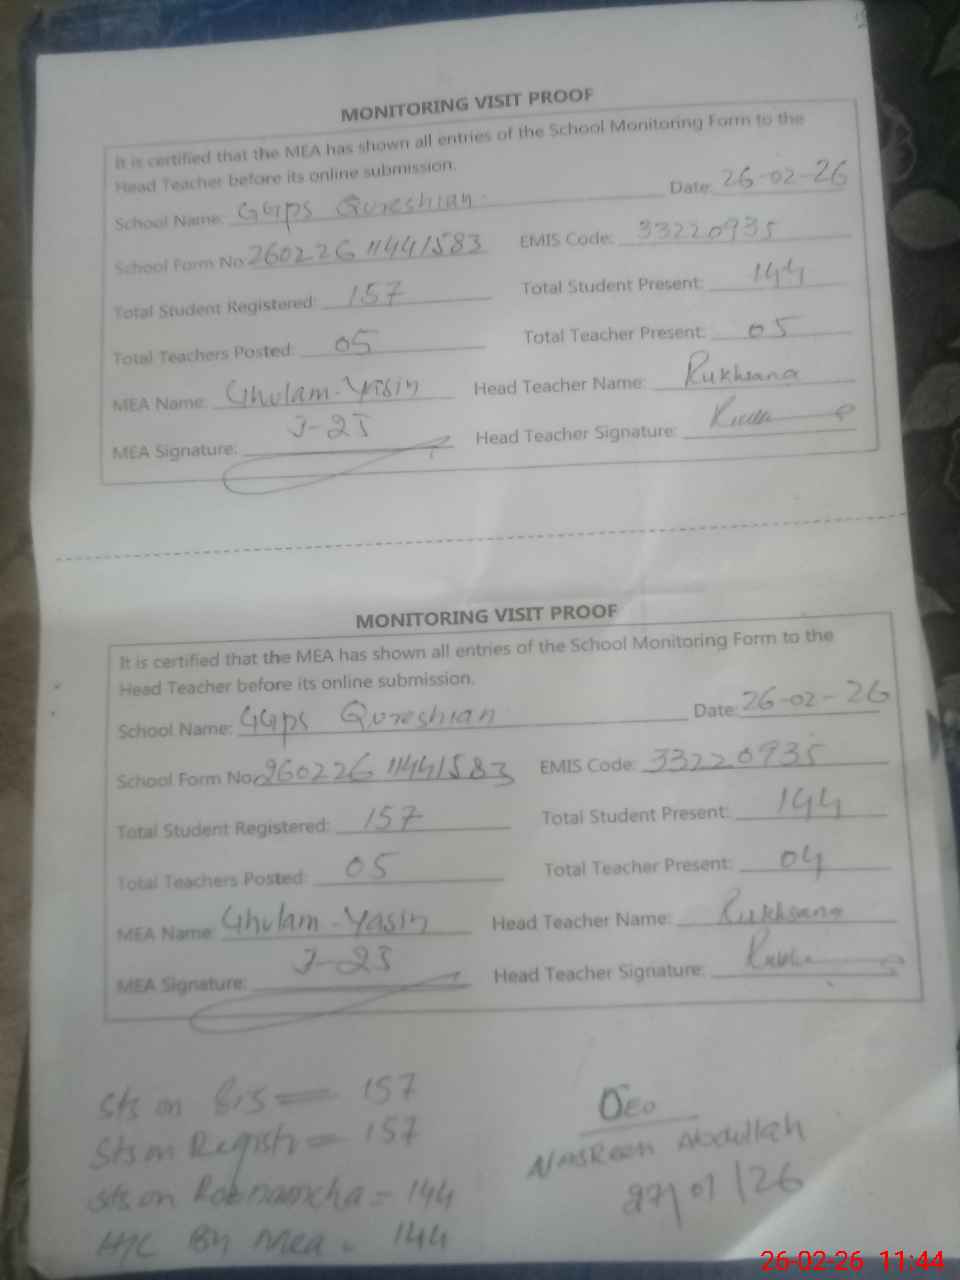 MONITORING VISIT PROOF
It is certified that the MEA has shown all entries of the School Monitoring Form to the
Head Teacher before its online submission.
School Name: GGPS Qureshian Date: 26-02-26
School Form No: 260226 11441583 EMIS Code: 33220935
Total Student Registered: 157 Total Student Present: 144
Total Teachers Posted: 05 Total Teacher Present: 05
MEA Name: Ghulam-Yasin Head Teacher Name: Rukhsana
J-25
MEA Signature: Head Teacher Signature:
MONITORING VISIT PROOF
It is certified that the MEA has shown all entries of the School Monitoring Form to the
Head Teacher before its online submission.
School Name: GGPS Qureshian Date: 26-02-26
School Form No: 260226 11441583 EMIS Code: 33220935
Total Student Registered: 157 Total Student Present: 144
Total Teachers Posted: 05 Total Teacher Present: 04
MEA Name: Ghulam-Yasin Head Teacher Name: Rukhsana
J-25
MEA Signature: Head Teacher Signature:
Sts on SIS = 157
Sts on Registr = 157
Sts on Roznamcha = 144
H/C By Mea = 144
DEO
Nasreen Abdullah
27/01/26
26-02-26 11:44